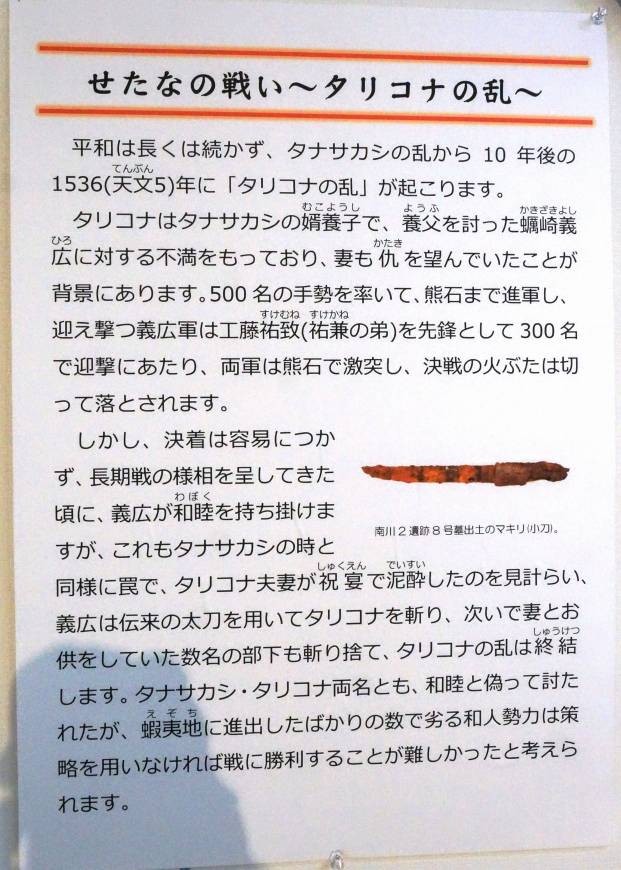 せたなの戦い～タリコナの乱～
平和は長くは続かず、タナサカシの乱から 10 年後の
てんぶん
1536(天文5)年に「タリコナの乱」が起こります。
むこようし ようふ かきざきよし
タリコナはタナサカシの婿養子で、養父を討った蠣崎義
ひろ かたき
広に対する不満をもっており、妻も仇を望んでいたことが
背景にあります。500 名の手勢を率いて、熊石まで進軍し、
すけむね すけかね
迎え撃つ義広軍は工藤祐致(祐兼の弟)を先鋒として 300 名
で迎撃にあたり、両軍は熊石で激突し、決戦の火ぶたは切
って落とされます。
しかし、決着は容易につか
ず、長期戦の様相を呈してきた
わぼく
頃に、義広が和睦を持ち掛けま
すが、これもタナサカシの時と
しゅくえん でいすい
同様に罠で、タリコナ夫妻が祝宴で泥酔したのを見計らい、
義広は伝来の太刀を用いてタリコナを斬り、次いで妻とお
しゅうけつ
供をしていた数名の部下も斬り捨て、タリコナの乱は終結
します。タナサカシ・タリコナ両名とも、和睦と偽って討た
えぞち
れたが、蝦夷地に進出したばかりの数で劣る和人勢力は策
略を用いなければ戦に勝利することが難しかったと考えら
れます。
南川2遺跡8号墓出土のマキリ(小刀)。